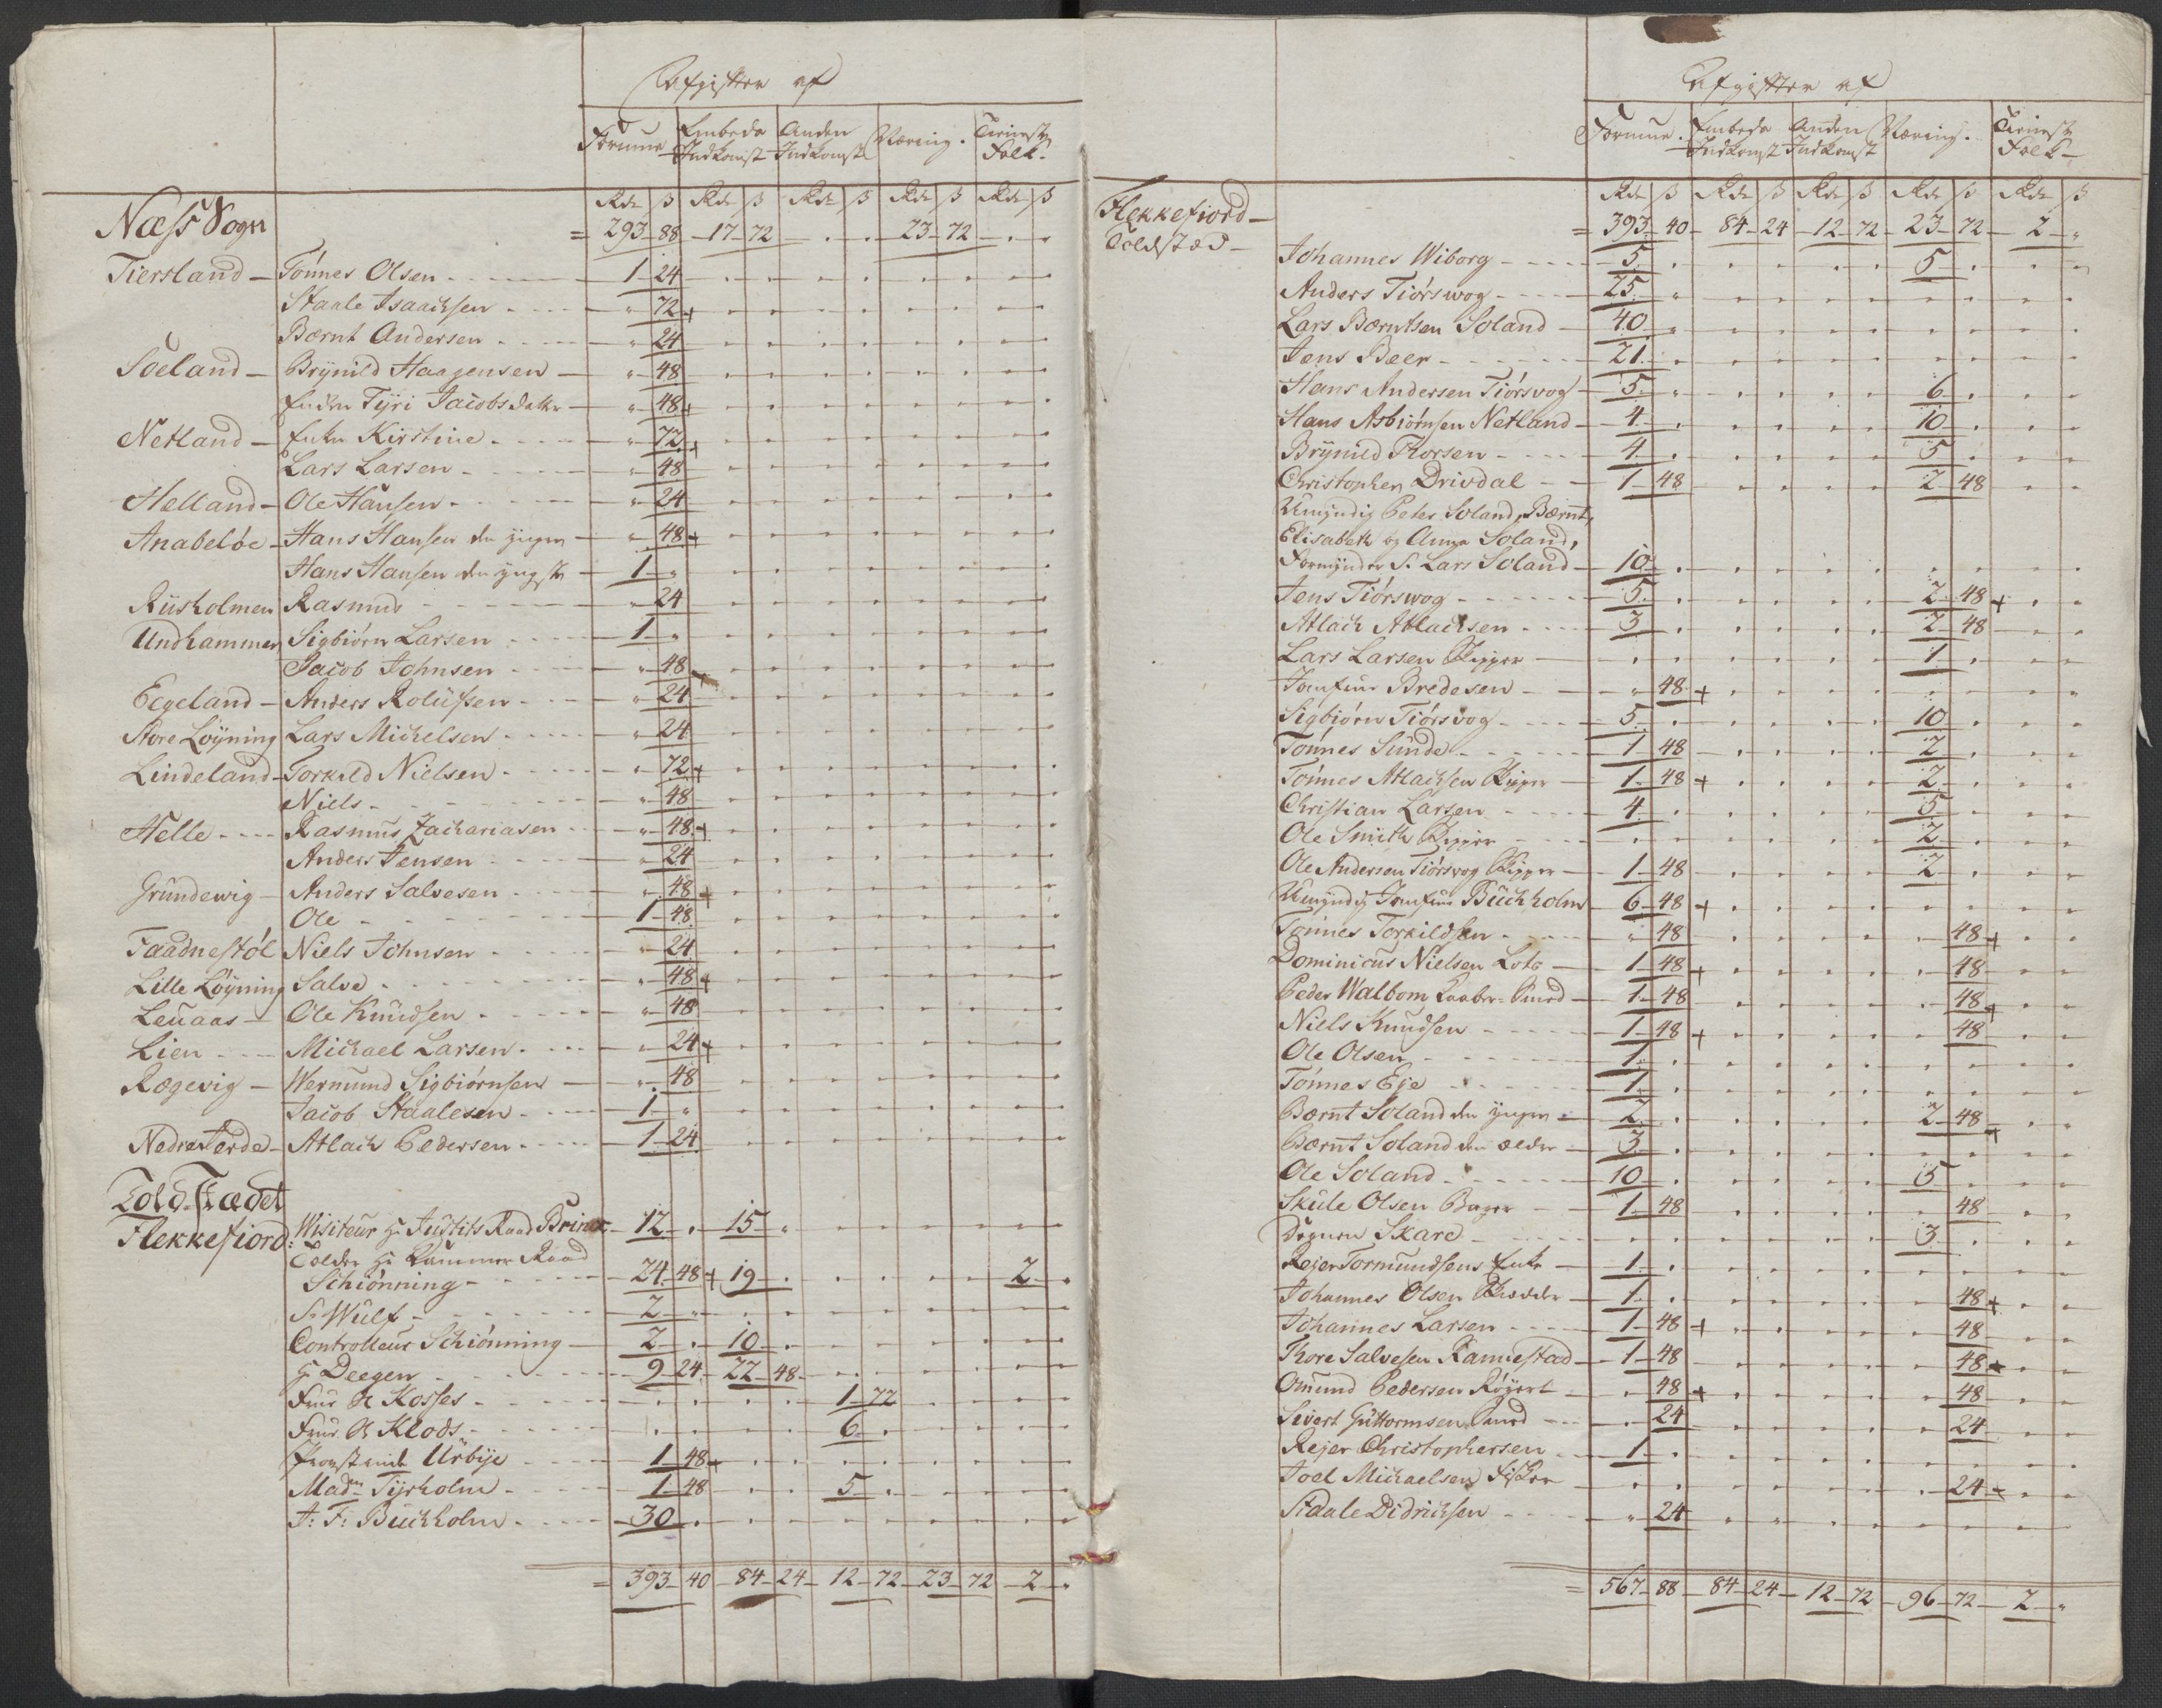 Afgifter af
Formue Embeds Indkomst Anden Indkomst Næring. Tieneste Folk.
Rdr ß Rdr ß Rdr ß Rdr ß Rdr ß
Næss Sogn = 293 88 17 72 . . 23 72 . .
Tiersland - Tönnes Olsen - 1 24
Staale Isaachsen - " 72 +
Bærnt Andersen - " 24
Soeland - Brynild Haagensen - " 48
Enken Tyri Jacobsdatter - " 48 +
Netland - Enke Kirstine - " 72 +
Lars Larsen - " 48
Helland - Ole Hansen - " 24
Anabelöe - Hans Hansen den yngre - " 48 +
Hans Hansen den yngste - 1 "
Riisholmen Rasmus - " 24
Undhammer Sigbiörn Larsen - 1 "
Jacob Johnsen - " 48 +
Eegeland - Anders Rolufsen - " 24
Store Löyning Lars Michelsen - " 24
Lindeland - Torkild Nielsen - " 72 +
Niels - " 48
Helle - Rasmus Zachariasen - " 48 +
Anders Jensen - " 24
Grundewig - Anders Salvesen - " 48 +
Ole - 1 48
Faadnestöl Niels Johnsen - " 24
Lille Löyning Salve - " 48 +
Leuaas - Ole Knudsen - " 48
Lien - Michael Larsen - " 24 +
Rægevig - Wermund Sigbiörnsen - " 48
Jacob Staalesen - 1 "
Nedre Terde - Atlach Pedersen - 1 24
Told-Stædet
Flekkefiord: Visiteur Hr Justits Raad Brinck - 12 . 15 "
Tolder Hr Kammer Raad
Schiönning - 24 48 + 19 . . . . . 2 .
Sr Wulf - 2 "
Controlleur Schiönning - 2 . 10 .
Hr Deegen - 9 24 22 48
Frue A Kosses - . . . . 1 72
Frue A Klods - . . . . 6 .
Provstinde Urbye - 1 48 +
Madm Tyrholm - 1 48 . . 5 .
J: F: Buchholm - 30 .
= 393 40 84 24 12 72 23 72 2 "
Afgifter af
Formue. Embeds Indkomst Anden Indkomst Næring. Tieneste Folk
Rdr ß Rdr ß Rdr ß Rdr ß Rdr ß
Flekkefiord - = 393 40 84 24 12 72 23 72 2 "
Toldstæd -
Johannes Wiborg - 5 . . . . . 5 .
Anders Tiörswog - 25 "
Lars Bærntsen Soland - 40 "
Jens Beer - 21 .
Hans Andersen Tiörsvog - 5 . . . . . 6 .
Hans Asbiörnsen Netland - 4 . . . . . 10 .
Brynild Thorsen - 4 . . . . . 5 .
Christopher Drivdal - 1 48 . . . . 2 48
Umyndig Peter Soland, Bærnt,
Elisabeth og Anna Soland,
Formynder Sr Lars Soland - 10 .
Jens Tiörswog - 5 . . . . . 2 48 +
Atlach Atlachsen - 3 . . . . . 2 48
Lars Larsen Skipper - . . . . . . 1 .
Jomfrue Bredesen - " 48 +
Sigbiörn Tiörsvog - 5 . . . . . 10 .
Tönnes Sunde - 1 48 . . . . 2 .
Tönnes Atlachsen Skipper - 1 48 + . . . . 2 .
Christian Larsen - 4 . . . . . 5 .
Ole Smith Skipper - . . . . . . 2 .
Ole Andersen Tiörsvog Skipper - 1 48 . . . . 2 .
Umyndig Jomfrue Buchholm - 6 48 +
Tönnes Torkildsen - " 48 . . . . . 48 +
Dominicus Nielsen Lots - 1 48 + . . . . . 48
Peder Walbom Kaaber-Smed - 1 48 . . . . . 48 +
Niels Knudsen - 1 48 + . . . . . 48
Ole Olsen - 1 .
Tönnes Eje - 1 .
Bærnt Soland den yngre - 2 . . . . . 2 48 +
Bærnt Soland den ælder - 3 .
Ole Soland - 10 . . . . . 5 .
Skule Olsen Bager - 1 48 . . . . . 48
Degnen Skare - . . . . . . 3 .
Rejer Tormundsens Enke - 1 .
Johannes Olsen Skredder - 1 . . . . . . 48 +
Johannes Larsen - 1 48 + . . . . . 48
Thore Salvesen Rannestad - 1 48 . . . . . 48 +
Omund Pedersen Röyert - " 48 + . . . . . 48
Sivert Guttormsen Smed - . 24 . . . . . 24
Rejer Christophersen - 1 .
Joel Michaelsen Fisker - . . . . . . . 24 +
Staale Didrichsen - " 24
= 567 88 84 24 12 72 96 72 2 "